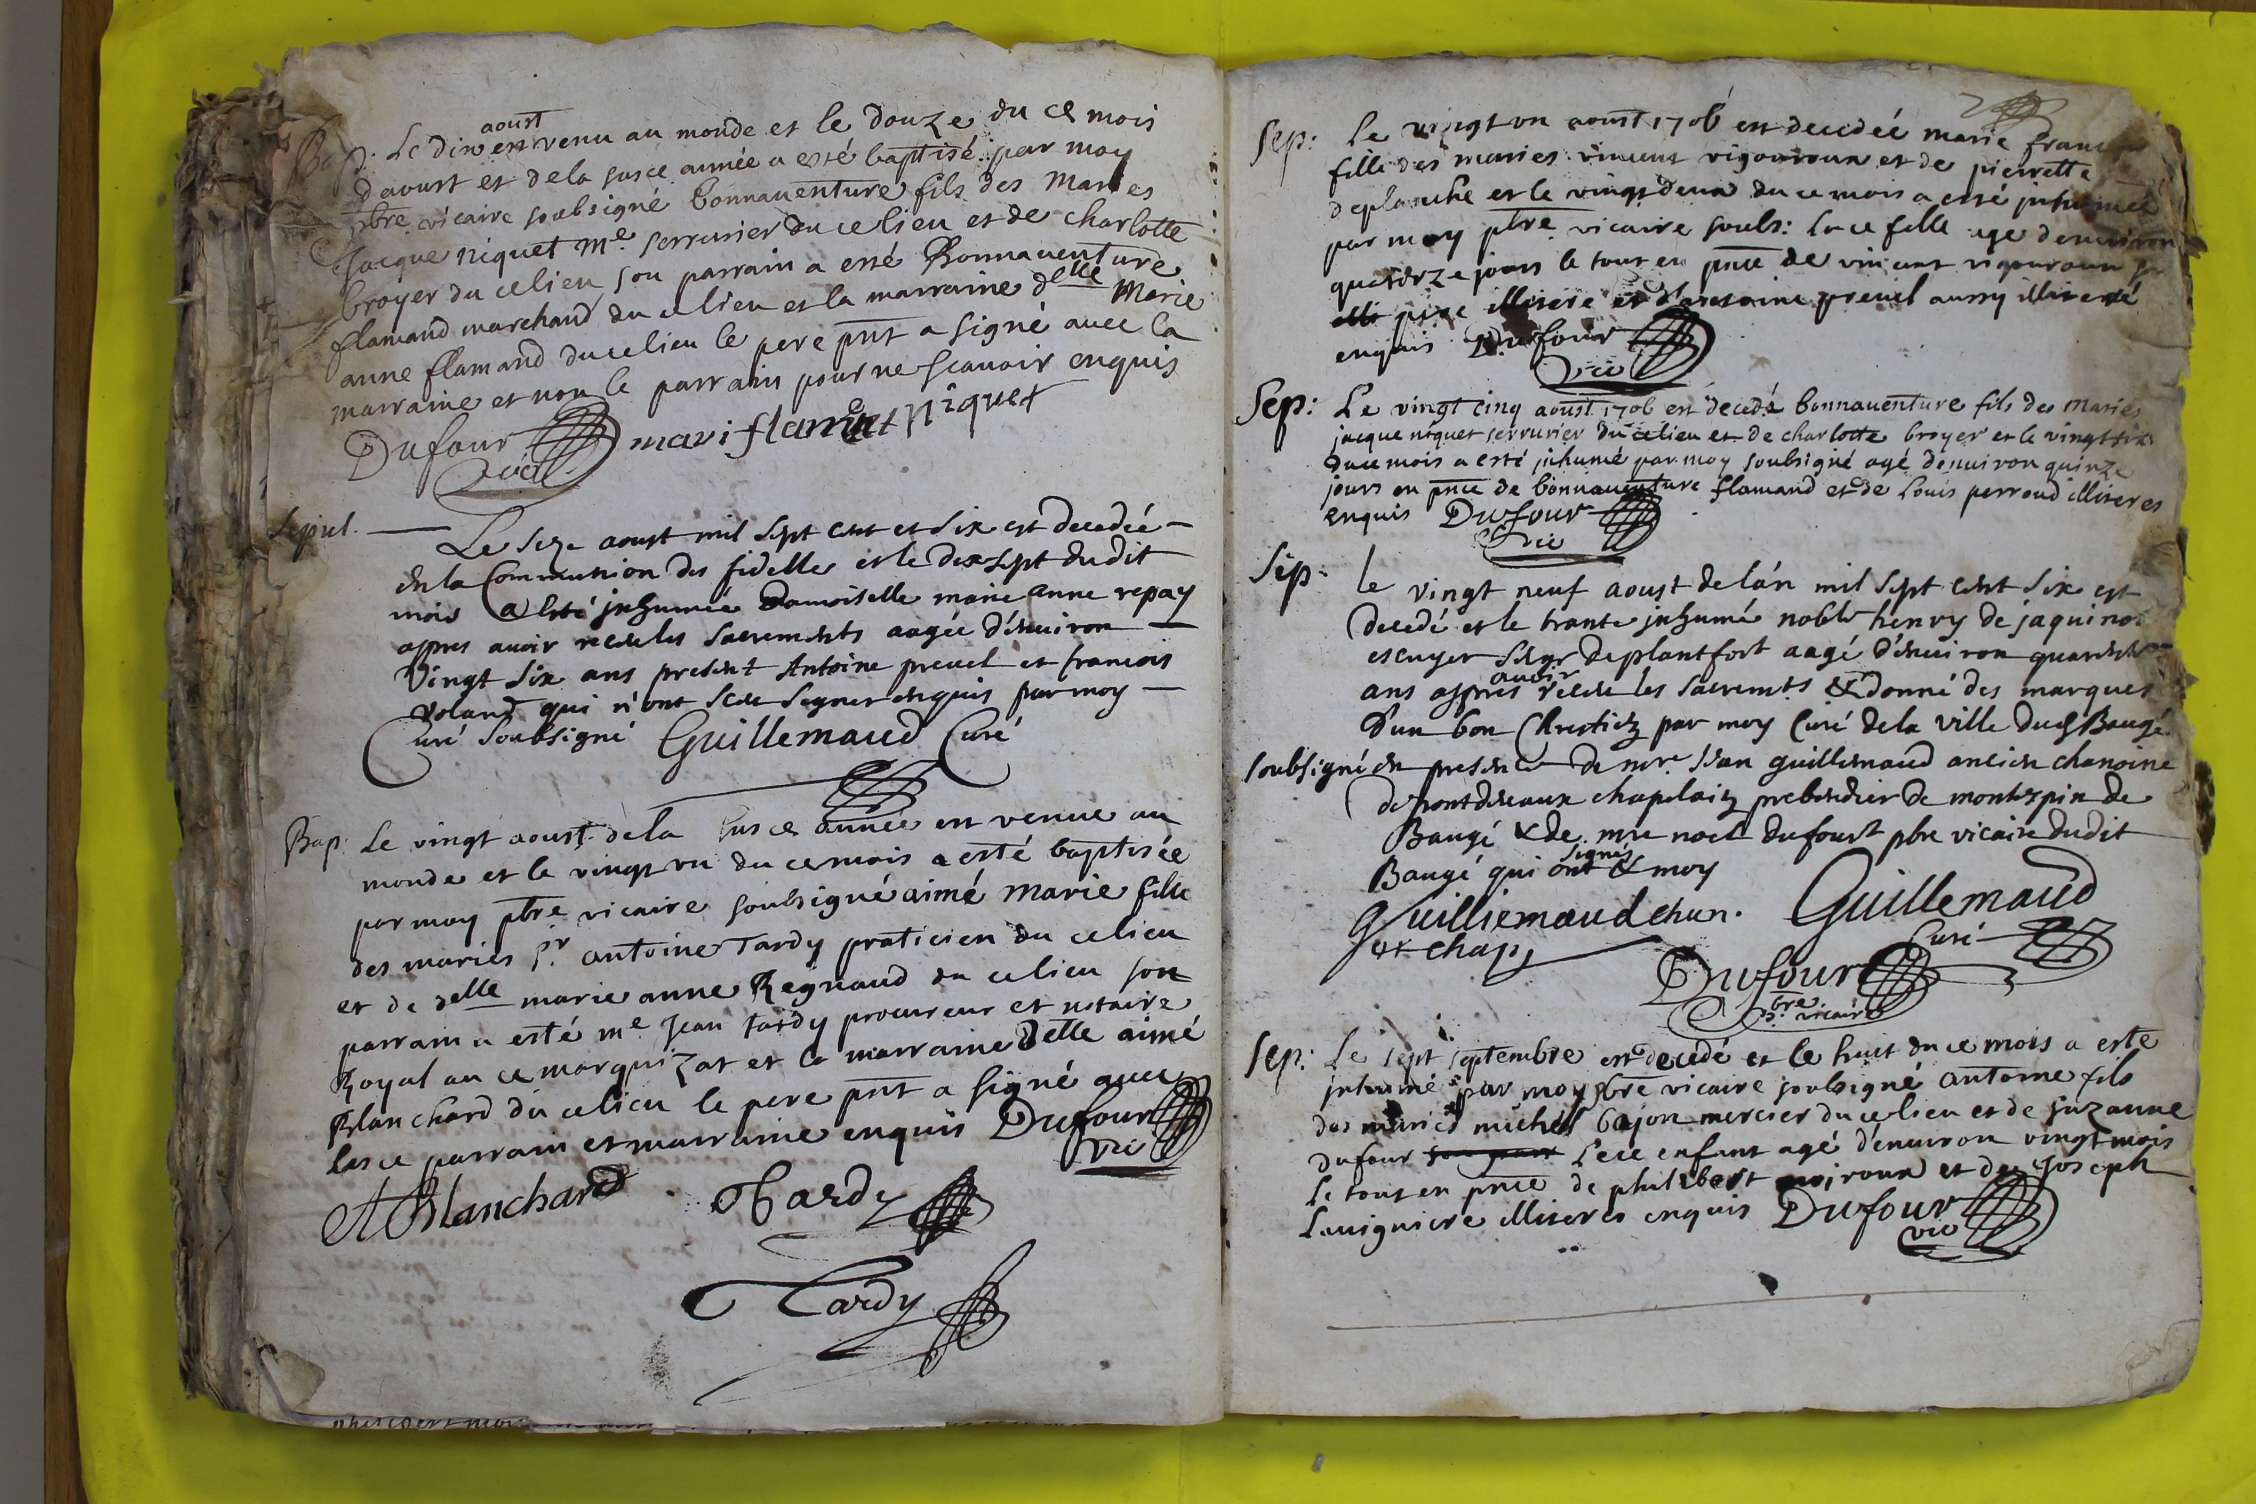 Bap. Le dix aoust est venu au monde et le douze du ce mois
daoust et dela susce année a esté baptisé par moy
pbre vicaire soubsigné bonnauenture fils des Maries
Jacque niquet me serrurier du ce lieu et de charlotte
broyer du ce lieu son parrain a esté Bonnauenture
flamand marchand du ce lieu et la marraine delle Marie
anne flamand du ce lieu le pere pnt a signé auec la
marraine et non le parrain pour ne scauoir enquis
Dufour vic mari flamet niquet
Sepul.
Le seze aoust mil sept cent et six est decedée
en la Communion des fidelles et le dexsept dudit
mois a esté inhumée Damoiselle marie anne repay
appres auoir receu les sacrements aagée d'enuiron
Vingt six ans present Antoine preuel et francois
Voland qui n'ont sceu signer enquis par moy
Curé soubsigné Guillemaud Curé
Bap: Le vingt aoust dela susce année est venue au
monde et le vingt vn du ce mois a esté baptisée
par moy pbre vicaire soubsigné aimé Marie fille
des mariés sr. antoine Tardy praticien du ce lieu
et de delle marie anne Regnaud du ce lieu son
parrain a esté me Jean tardy procureur et notaire
Royal au ce marquizat et la marraine delle aimé
Blanchard du ce lieu le pere pnt a signé auec
les ce parrain et marraine enquis Dufour vic
A Blanchard Tardy
Tardy
Sep: Le vingt vn aoust 1706 est decedeé marie
fille des maries vincent vigouroux et de pierrette
deplanche et le vingt deux du ce mois a esté inhumeé
par moy pbre vicaire soubs: la ce fille age denuiron
quatorze jours le tout en pnce de vincent vigouroux
pere illitere et d'antoine preuel aussy illiteré
enquis Dufour vic
Sep: Le vingt cinq aoust 1706 est decedé bonnauenture fils des Maries
jacque niquet serrurier du ce lieu et de charlotte broyer et le vingt six
du ce mois a esté inhumé par moy soubsigné agé denuiron quinze
jours en pnce de bonnauenture flamand et de Louis perroud illiteres
enquis Dufour vic
Sep. le vingt neuf aoust de lan mil sept cent six est
decedé et le trante inhumé noble henry de jaquinot
escuyer siegr de plantfort aagé d'enuiron quarente
ans appres auoir receu les sacremts & donné des marques
d'un bon Chrestien par moy Curé de la ville dud Baugé
soubsigné en presence de mre. Jean guillemaud ancien chanoine
de pontdeuaux chapelain prebendier de montespin de
Baugé & de mre noel dufour pbre vicaire dudit
Baugé qui ont signés & moy
Guilliemaud chan. Guillemaud
et chap, Curé
Dufour
pbre vicaire
Sep: Le sept septembre est decedé et le huit du ce mois a esté
inhumé par moy pbre vicaire soubsigné antoine fils
des mariés michel bajon mercier du ce lieu et de suzanne
dufour lece enfant agé d'enuiron vingt mois
le tout en pnce de philibert et de Joseph
Lauigniere illiteres enquis Dufour
vic